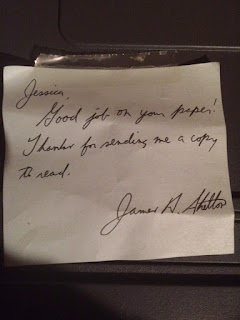 Jessica,
Good job on your paper!
Thanks for sending me a copy
to read.
James A.